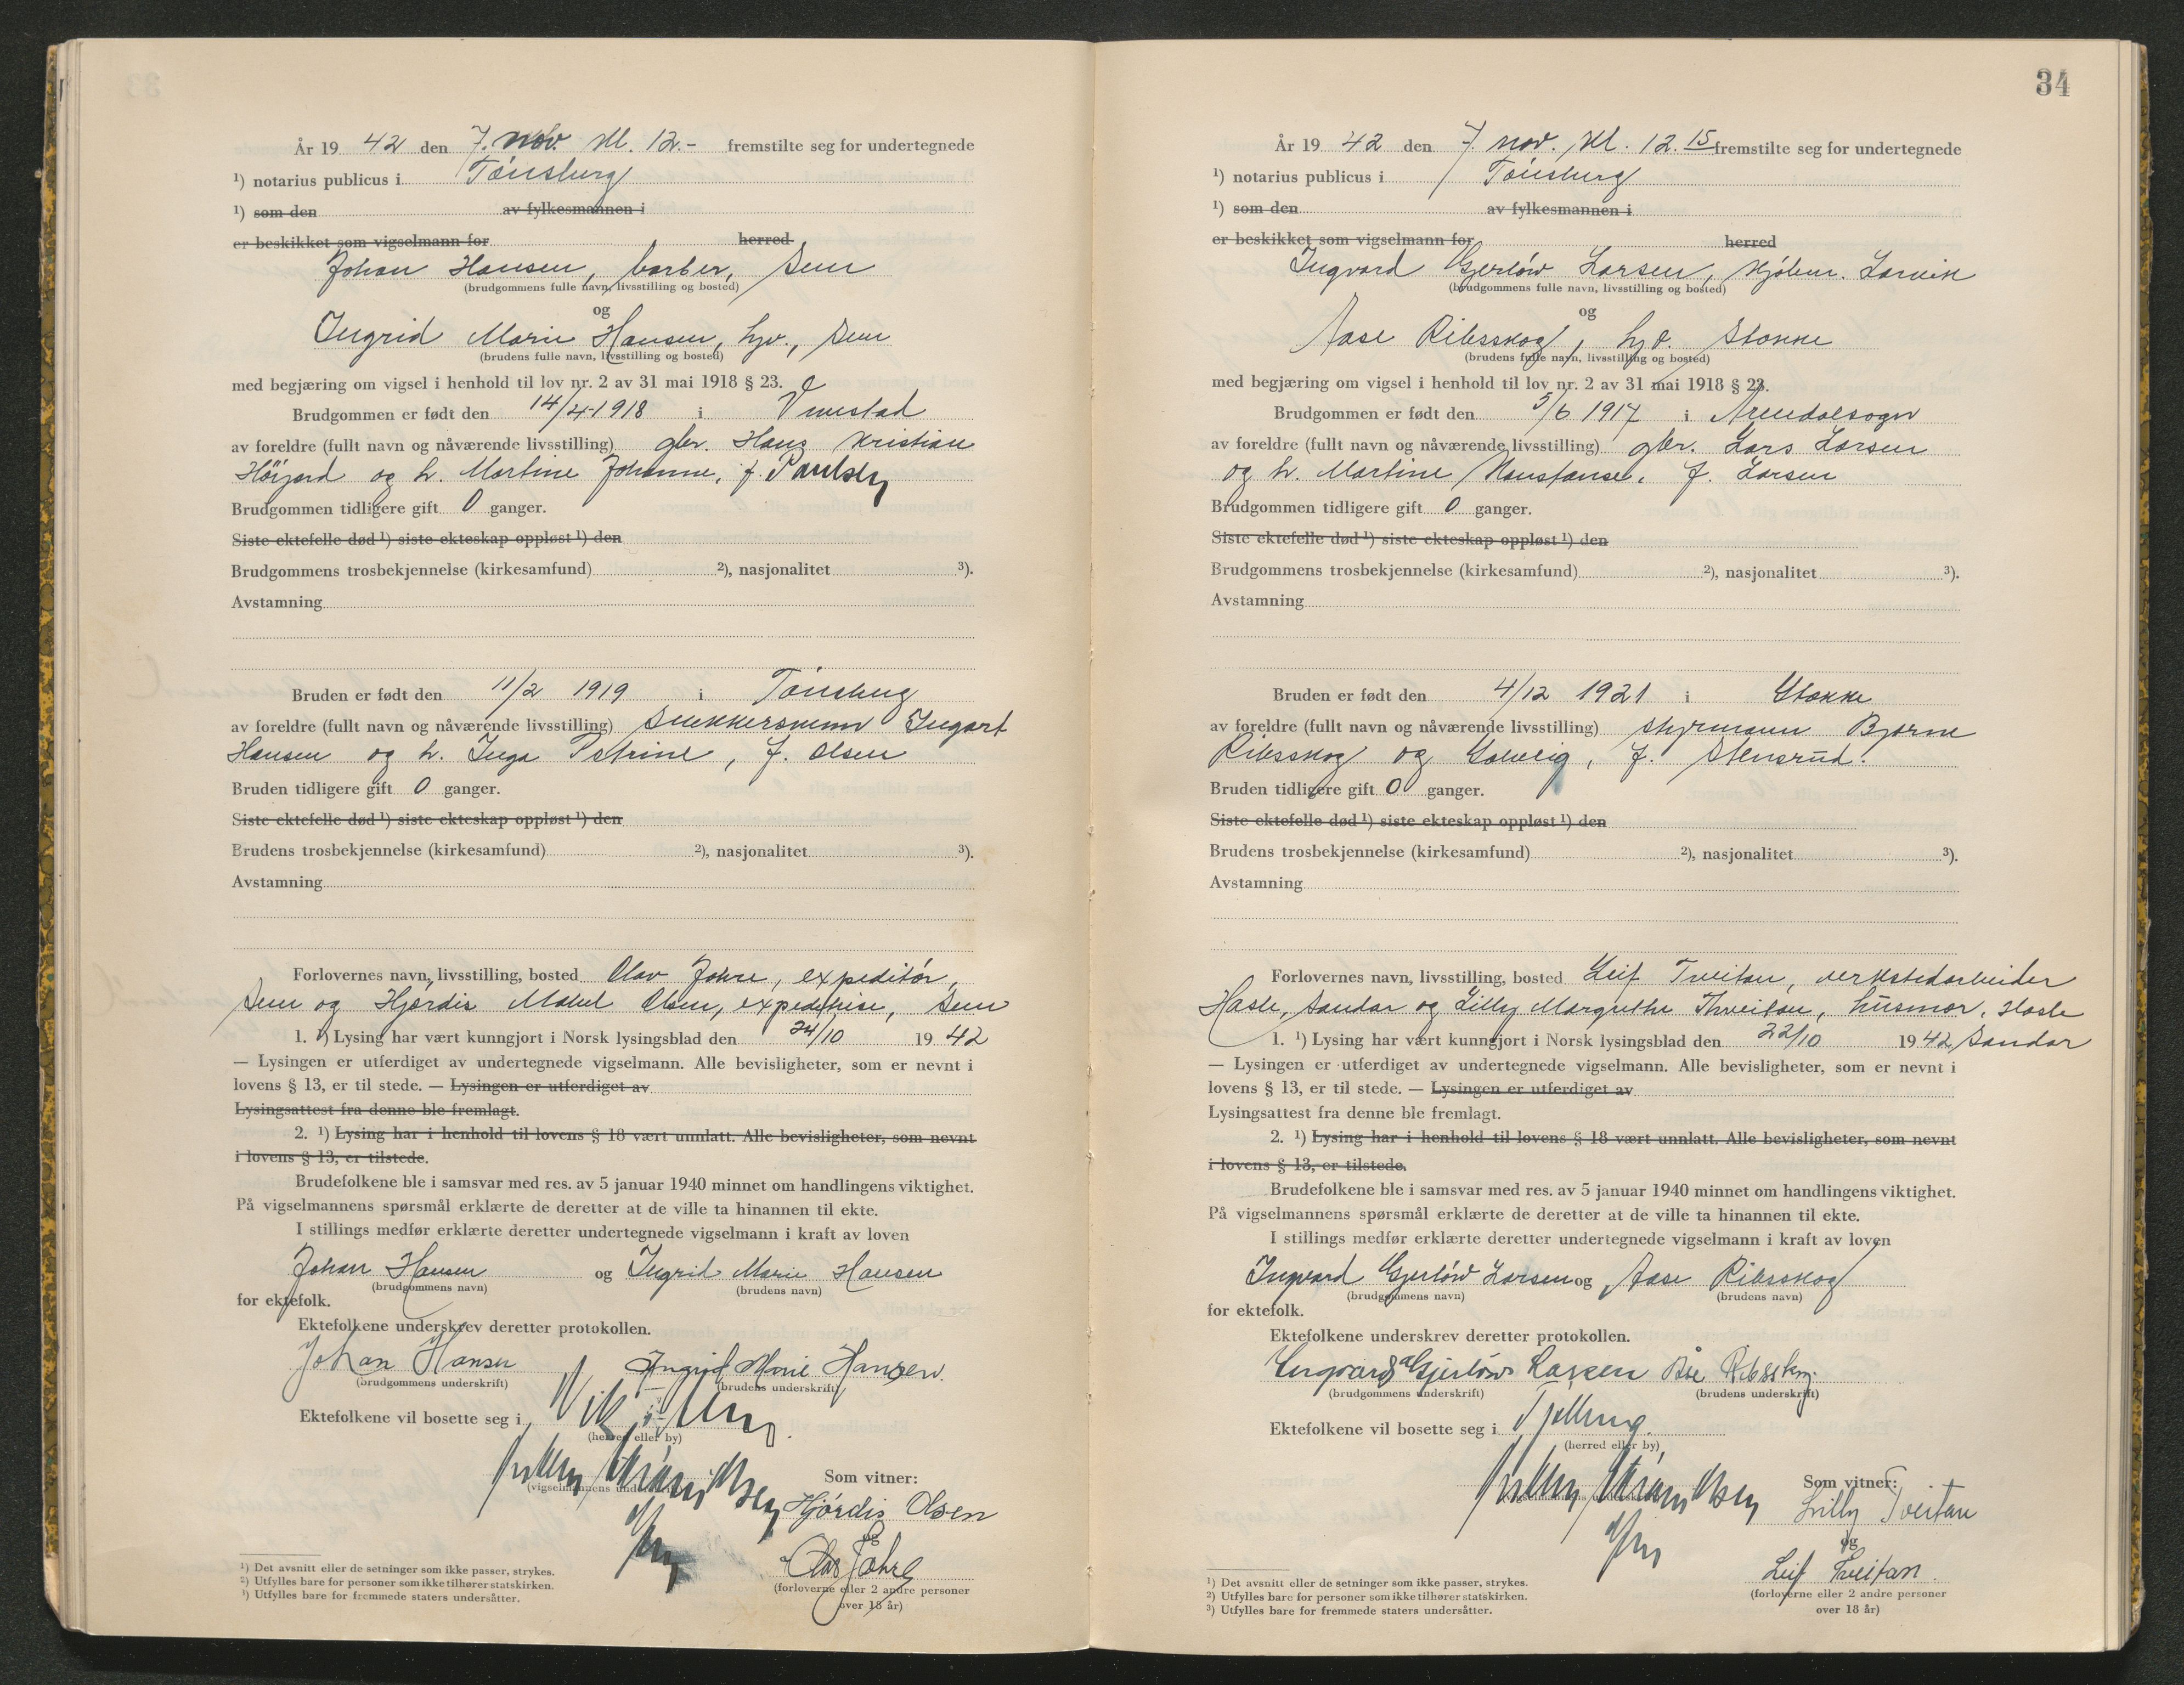 År 19 42 den 7. nov. kl. 12.- fremstilte seg for undertegnede
¹) notarius publicus i Tønsberg
¹) som den av fylkesmannen i
er beskikket som vigselmann for herred
Johan Hansen, barber, Sem
(brudgommens fulle navn, livsstilling og bosted)
og
Ingrid Marie Hansen, hjv., Sem
(brudens fulle navn, livsstilling og bosted)
med begjæring om vigsel i henhold til lov nr. 2 av 31 mai 1918 § 23.
Brudgommen er født den 14/4-1918 i
av foreldre (fullt navn og nåværende livsstilling) gbr. Hans Kristian
og h. Martine Johanne, f. Paulsen
Brudgommen tidligere gift 0 ganger.
Siste ektefelle død ¹) siste ekteskap oppløst ¹) den
Brudgommens trosbekjennelse (kirkesamfund) ²), nasjonalitet ³).
Avstamning
Bruden er født den 11/2 1919 i Tønsberg
av foreldre (fullt navn og nåværende livsstilling) snekkersvenn Ingart
Hansen og h. Inga Petrine, f. Olsen
Bruden tidligere gift 0 ganger.
Siste ektefelle død ¹) siste ekteskap oppløst ¹) den
Brudens trosbekjennelse (kirkesamfund) ²), nasjonalitet ³).
Avstamning
Forlovernes navn, livsstilling, bosted Olav Johre, expeditør,
Sem og Hjørdis Mabel Olsen, expeditrise, Sem
1. ¹) Lysing har vært kunngjort i Norsk lysingsblad den 24/10 19 42
— Lysingen er utferdiget av undertegnede vigselmann. Alle bevisligheter, som er nevnt i
lovens § 13, er til stede. — Lysingen er utferdiget av
Lysingsattest fra denne ble fremlagt.
2. ¹) Lysing har i henhold til lovens § 18 vært unnlatt. Alle bevisligheter, som nevnt
i lovens § 13, er tilstede.
Brudefolkene ble i samsvar med res. av 5 januar 1940 minnet om handlingens viktighet.
På vigselmannens spørsmål erklærte de deretter at de ville ta hinannen til ekte.
I stillings medfør erklærte deretter undertegnede vigselmann i kraft av loven
Johan Hansen og Ingrid Marie Hansen
(brudgommens navn) (brudens navn)
for ektefolk.
Ektefolkene underskrev deretter protokollen.
Johan Hansen Ingrid Marie Hansen.
(brudgommens underskrift) (brudens underskrift)
Ektefolkene vil bosette seg i
(herred eller by)
Som vitner:
Hjördis Olsen
og
Olav Johre
(forloverne eller 2 andre personer
over 18 år)
¹) Det avsnitt eller de setninger som ikke passer, strykes.
²) Utfylles bare for personer som ikke tilhører statskirken.
³) Utfylles bare for fremmede staters undersåtter.
34
År 19 42 den 7. nov. kl. 12.15 fremstilte seg for undertegnede
¹) notarius publicus i Tønsberg
¹) som den av fylkesmannen i
er beskikket som vigselmann for herred
Ingvard Gjerløw Larsen, kjøbm. Larvik
(brudgommens fulle navn, livsstilling og bosted)
og
Aase Ribsskog, hjv. Stokke
(brudens fulle navn, livsstilling og bosted)
med begjæring om vigsel i henhold til lov nr. 2 av 31 mai 1918 § 23.
Brudgommen er født den 5/6 1917 i
av foreldre (fullt navn og nåværende livsstilling) gbr. Lars Larsen
og h. Martine Konstanse, f. Larsen
Brudgommen tidligere gift 0 ganger.
Siste ektefelle død ¹) siste ekteskap oppløst ¹) den
Brudgommens trosbekjennelse (kirkesamfund) ²), nasjonalitet ³).
Avstamning
Bruden er født den 4/12 1921 i Stokke
av foreldre (fullt navn og nåværende livsstilling) styrmann Bjarne
Ribsskog og Solveig, f. Stensrud.
Bruden tidligere gift 0 ganger.
Siste ektefelle død ¹) siste ekteskap oppløst ¹) den
Brudens trosbekjennelse (kirkesamfund) ²), nasjonalitet ³).
Avstamning
Forlovernes navn, livsstilling, bosted Leif Tveitan, verkstedarbeider
Hasle, Sandar og Lilly Margrethe Thveitan, husmor, Hasle
1. ¹) Lysing har vært kunngjort i Norsk lysingsblad den 22/10 19 42 Sandar
— Lysingen er utferdiget av undertegnede vigselmann. Alle bevisligheter, som er nevnt i
lovens § 13, er til stede. — Lysingen er utferdiget av
Lysingsattest fra denne ble fremlagt.
2. ¹) Lysing har i henhold til lovens § 18 vært unnlatt. Alle bevisligheter, som nevnt
i lovens § 13, er tilstede.
Brudefolkene ble i samsvar med res. av 5 januar 1940 minnet om handlingens viktighet.
På vigselmannens spørsmål erklærte de deretter at de ville ta hinannen til ekte.
I stillings medfør erklærte deretter undertegnede vigselmann i kraft av loven
Ingvard Gjerløw Larsen og Aase Ribsskog
(brudgommens navn) (brudens navn)
for ektefolk.
Ektefolkene underskrev deretter protokollen.
Ingvard Gjerløw Larsen Åse Ribsskog.
(brudgommens underskrift) (brudens underskrift)
Ektefolkene vil bosette seg i Tjølling.
(herred eller by)
Som vitner:
Lilly Tveitan
og
Leif Tveitan.
(forloverne eller 2 andre personer
over 18 år)
¹) Det avsnitt eller de setninger som ikke passer, strykes.
²) Utfylles bare for personer som ikke tilhører statskirken.
³) Utfylles bare for fremmede staters undersåtter.